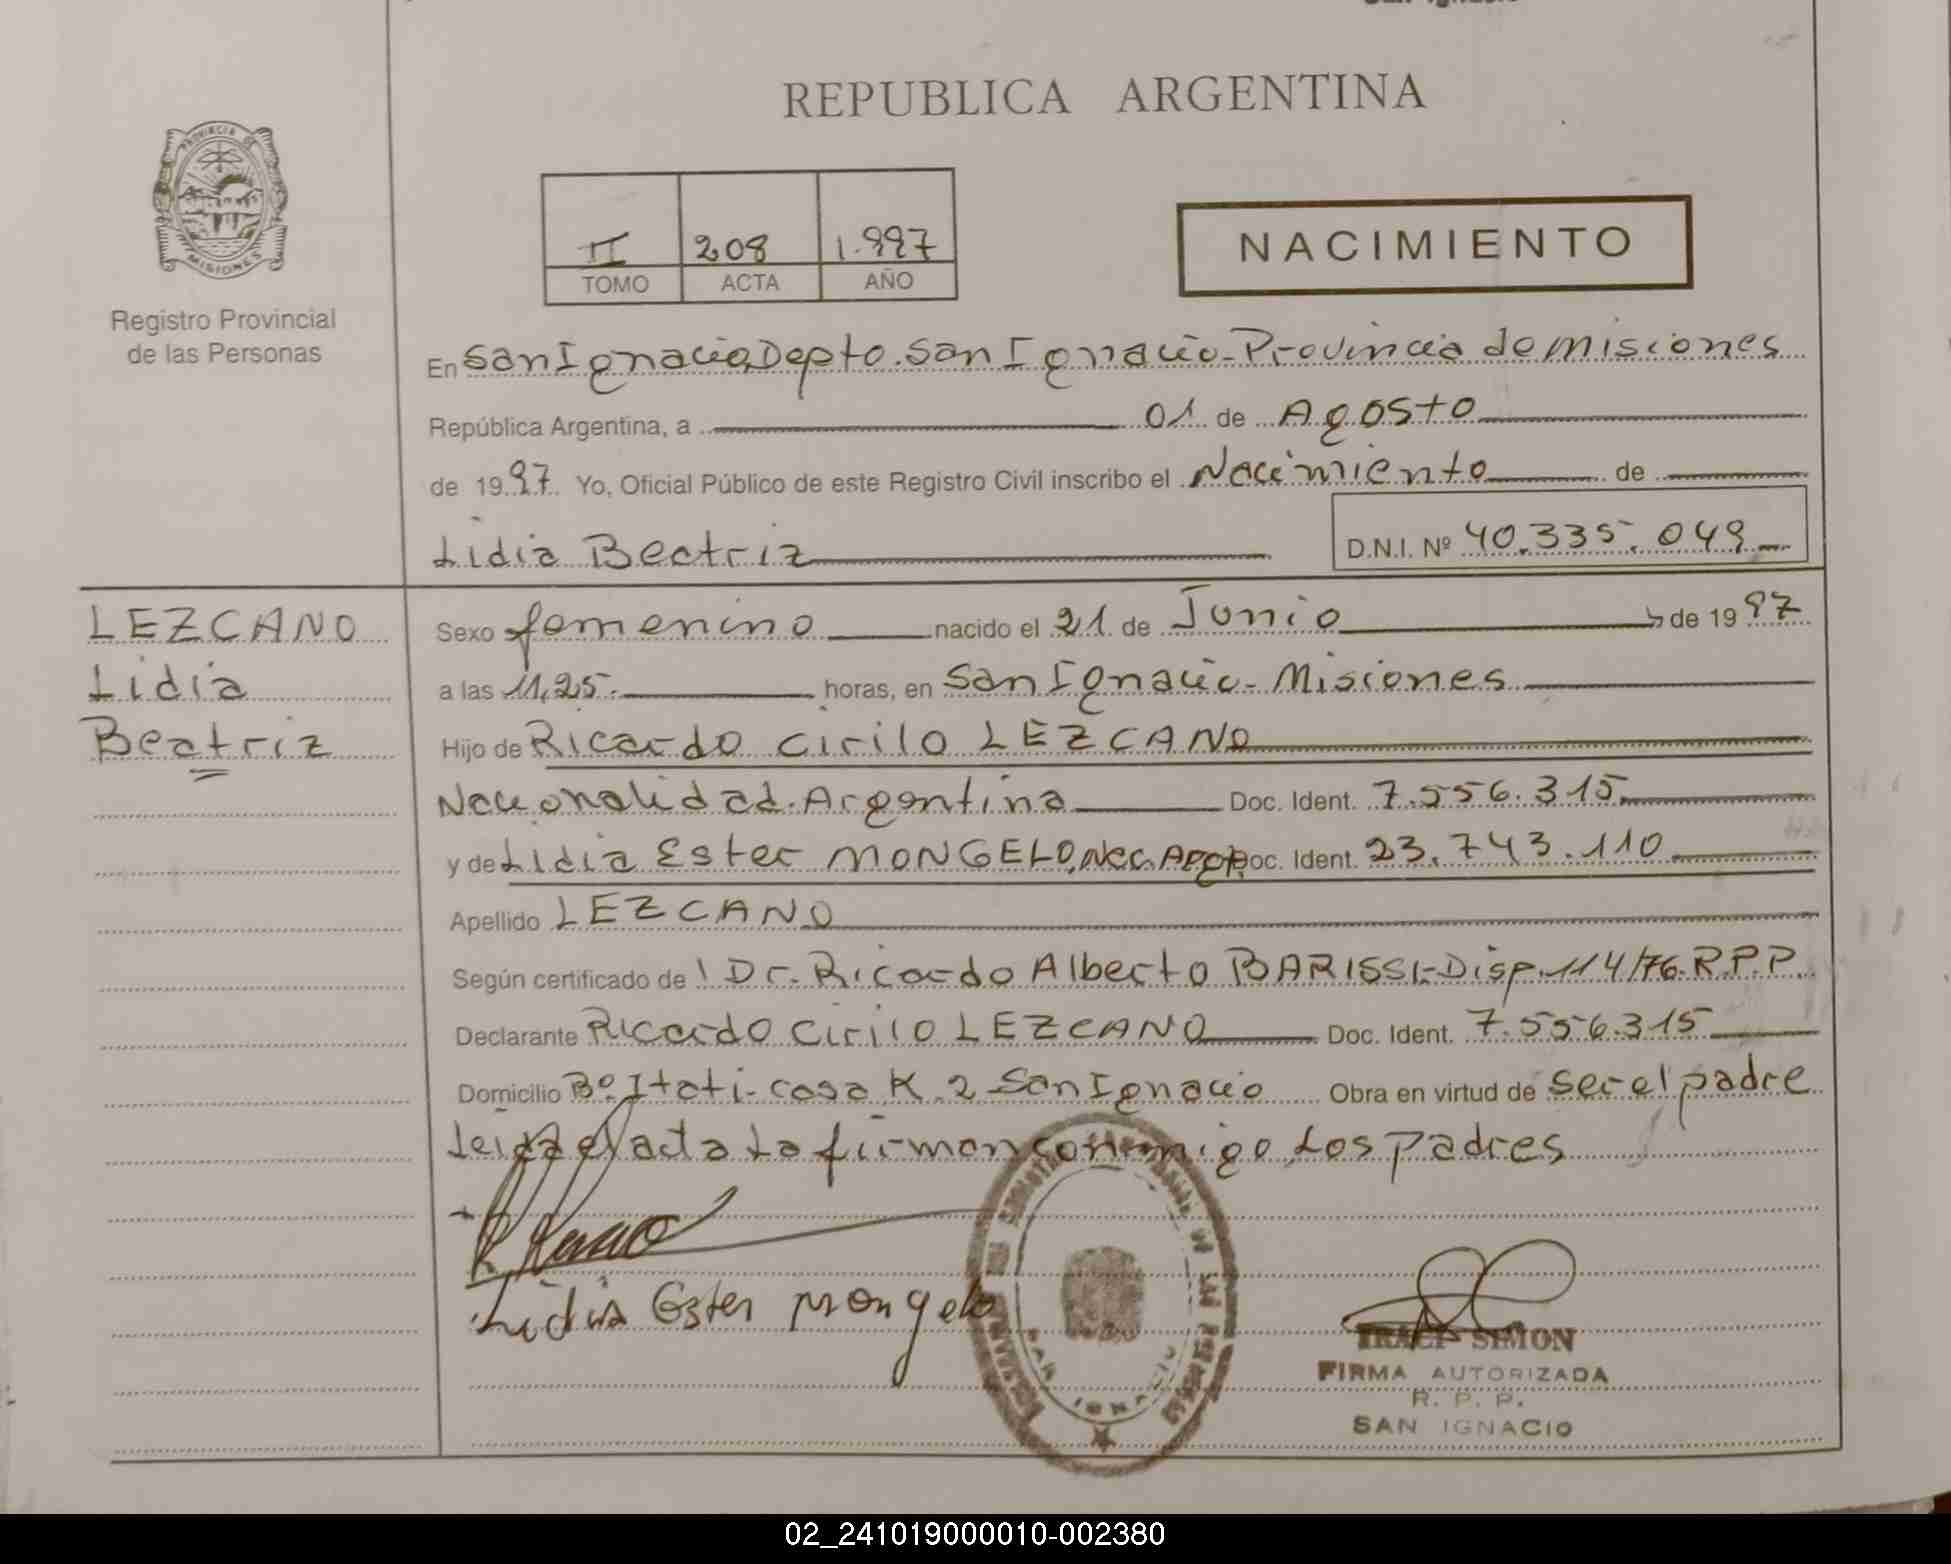 REPUBLICA ARGENTINA
PROVINCIA DE
MISIONES
Registro Provincial
de las Personas
II 208 1.997
TOMO ACTA AÑO
NACIMIENTO
En San Ignacio, Depto. San Ignacio - Provincia de Misiones
República Argentina, a 01 de Agosto
de 1997 Yo, Oficial Público de este Registro Civil inscribo el Nacimiento de
Lidia Beatriz D.N.I. Nº 40.335.049
LEZCANO
Lidia
Beatriz
Sexo femenino nacido el 21 de Junio de 1997
a las 11,25 horas, en San Ignacio - Misiones
Hijo de Ricardo Cirilo LEZCANO
Nacionalidad Argentina Doc. Ident. 7.556.315
y de Lidia Ester MONGELO, Nac. Arg. Doc. Ident. 23.743.110
Apellido LEZCANO
Según certificado de Dr. Ricardo Alberto BARISSI - Disp. 114/76. R.P.P.
Declarante Ricardo Cirilo LEZCANO Doc. Ident. 7.556.315
Domicilio Bº. Itati - casa K. 2 San Ignacio Obra en virtud de ser el padre
Leida el acta la firman conmigo Los padres
Lidia Ester Mongelo
SAN IGNACIO
IRACI SIMON
FIRMA AUTORIZADA
R. P. P.
SAN IGNACIO
02_241019000010-002380